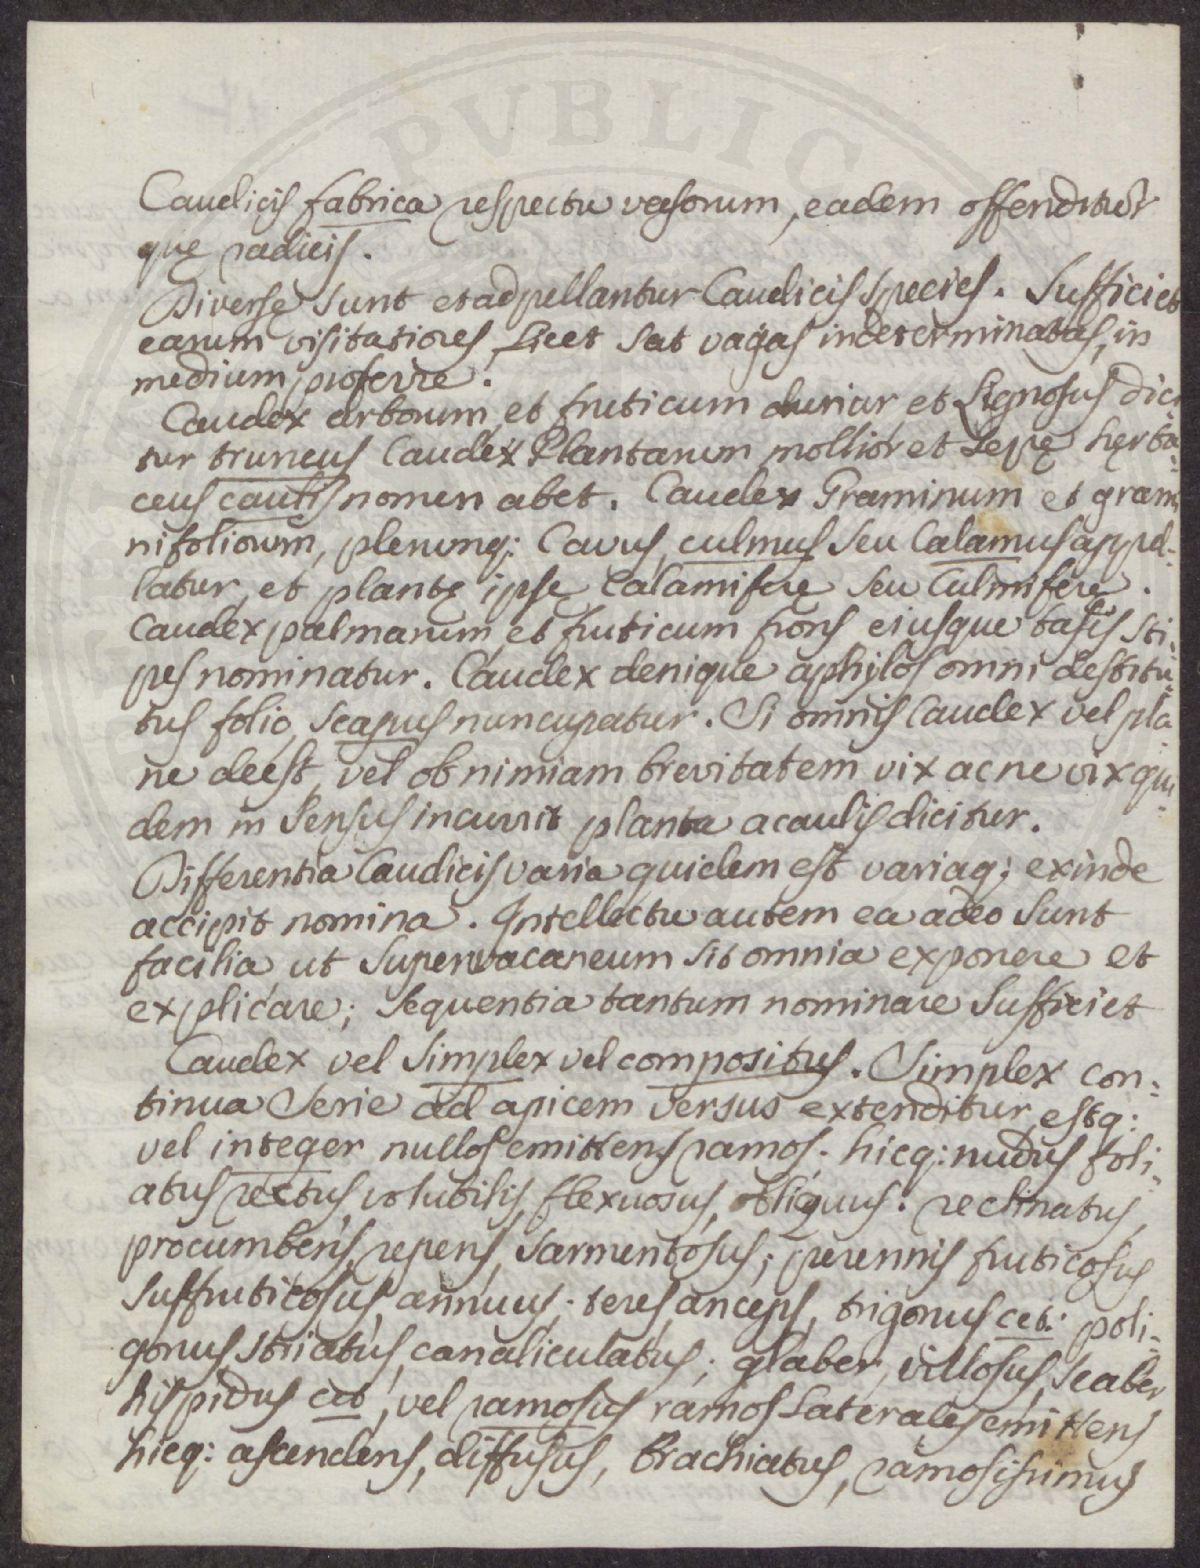 PVBLIC
Caudicis fabrica respectu vasorum, eadem offenditur
quę radicis.
Diversę sunt et adpellantur Caudicis species. Sufficiet
earum visitatiores licet sat vagas indeterminatas, in
medium proferre.
Caudex arborum et fruticum durior et Lignosus dici
tur truncus Caudex Plantarum mollior et sepę herba-
ceus caulis nomen abet. Caudex Graminum et grami
nifoliorum, plerumq: Cavus, culmus seu Calamus appel-
latur, et plantę ipsę Calamiferę seu Culmiferę.
Caudex palmarum et fruticum frons eiusque basis sti-
pes nominatur. Caudex denique aphylos omni destitu-
tus folio, scapus nuncupatur. Si omnis Caudex vel pla
ne deest, vel ob nimiam brevitatem vix ac ne vix qui-
dem in sensus incurrit planta acaulis dicitur.
Differentia Caudicis varia quidem est variaq; exinde
accipit nomina. Intellectu autem ea adeo sunt
facilia ut supervacaneum sit omnia exponere et
explicare; sequentia tantum nominare sufficiet
Caudex vel simplex vel compositus. Simplex con-
tinua serie ad apicem versus extenditur, estq:
vel integer nullos emittens ramos; hicq: nudus foli-
atus rectus, volubilis, flexuosus, obliquus. reclinatus,
procumbens, repens, sarmentosus; perennis fruticosus
suffruticosus, annuus; teres, anceps, trigonus cet: poli-
gonus striatus, canaliculatus; glaber, villosus, scaber,
hispidus cet, vel ramosus ramos Laterales emittens
hicq: ascendens, diffusus, brachiatus, ramosissimus